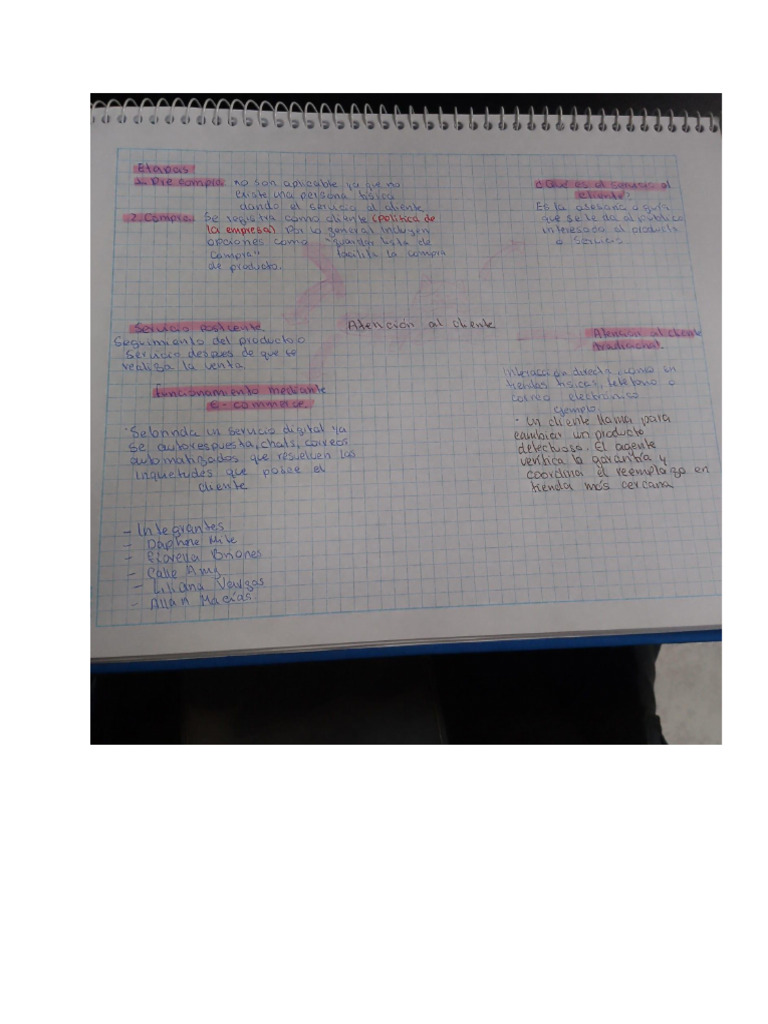 Etapas
1. Pre compra. no son aplicable ya que no
existe una persona física
dando el servicio al cliente
2. Compra. Se registra como cliente (política de
la empresa) Por lo general incluyen
opciones como "guardar lista de
compra" facilita la compra
de producto.
¿Qué es el servicio al
cliente?
Es la asesoria o guía
que se le da al público
interesado al producto
o servicio
Servicio postventa
Seguimiento del producto o
servicio despues de que se
realiza la venta
Atención al cliente
Atención al cliente
tradicional.
Interacción directa, como en
tiendas físicas, teléfono o
correo electrónico
ejemplo
· Un cliente llama para
cambiar un producto
defectuoso. El agente
verifica la garantía y
coordina el reemplazo en
tienda más cercana
Funcionamiento mediante
e-commerce.
Se brinda un servicio digital ya
se autorespuesta, chats, correos
automatizados que resuelven las
inquetudes que posee el
cliente
- Integrantes
- Daphne Mite
- Fiorella Briones
- Calle Amy
- Liliana
- Allan Macías